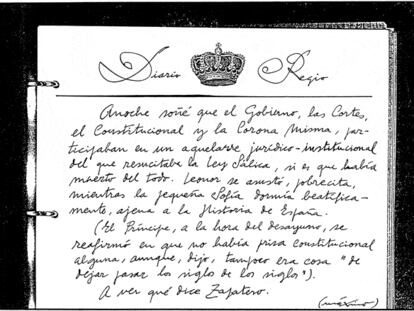 Diario Regio
Anoche soñé que el Gobierno, las Cortes,
el Constitucional y la Corona misma, par-
ticipaban en un aquelarre jurídico-institucional
del que resucitaba la Ley Sálica, si es que había
muerto del todo. Leonor se asustó, pobrecita,
mientras la pequeña Sofía dormía beatífica-
mente, ajena a la Historia de España.
(El Príncipe, a la hora del desayuno, se
reafirmó en que no había prisa constitucional
alguna, aunque, dijo, tampoco era cosa "de
dejar pasar los siglos de los siglos").
A ver qué dice Zapatero.
(máximo)